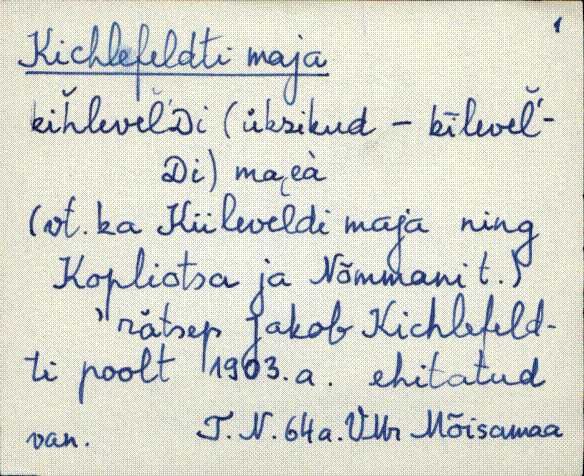 1
Kichlefeldti maja
kihlevel̆'Di (üksikud – kīlevel̆'-
Di) mai̯eà
(vt. ka Kiileveldi maja ning
Kopliotsa ja Nõmmani t.)
"rätsep Jakob Kichlefeld-
ti poolt 1903.a. ehitatud
van. T. N. 64a. VMr Mõisamaa